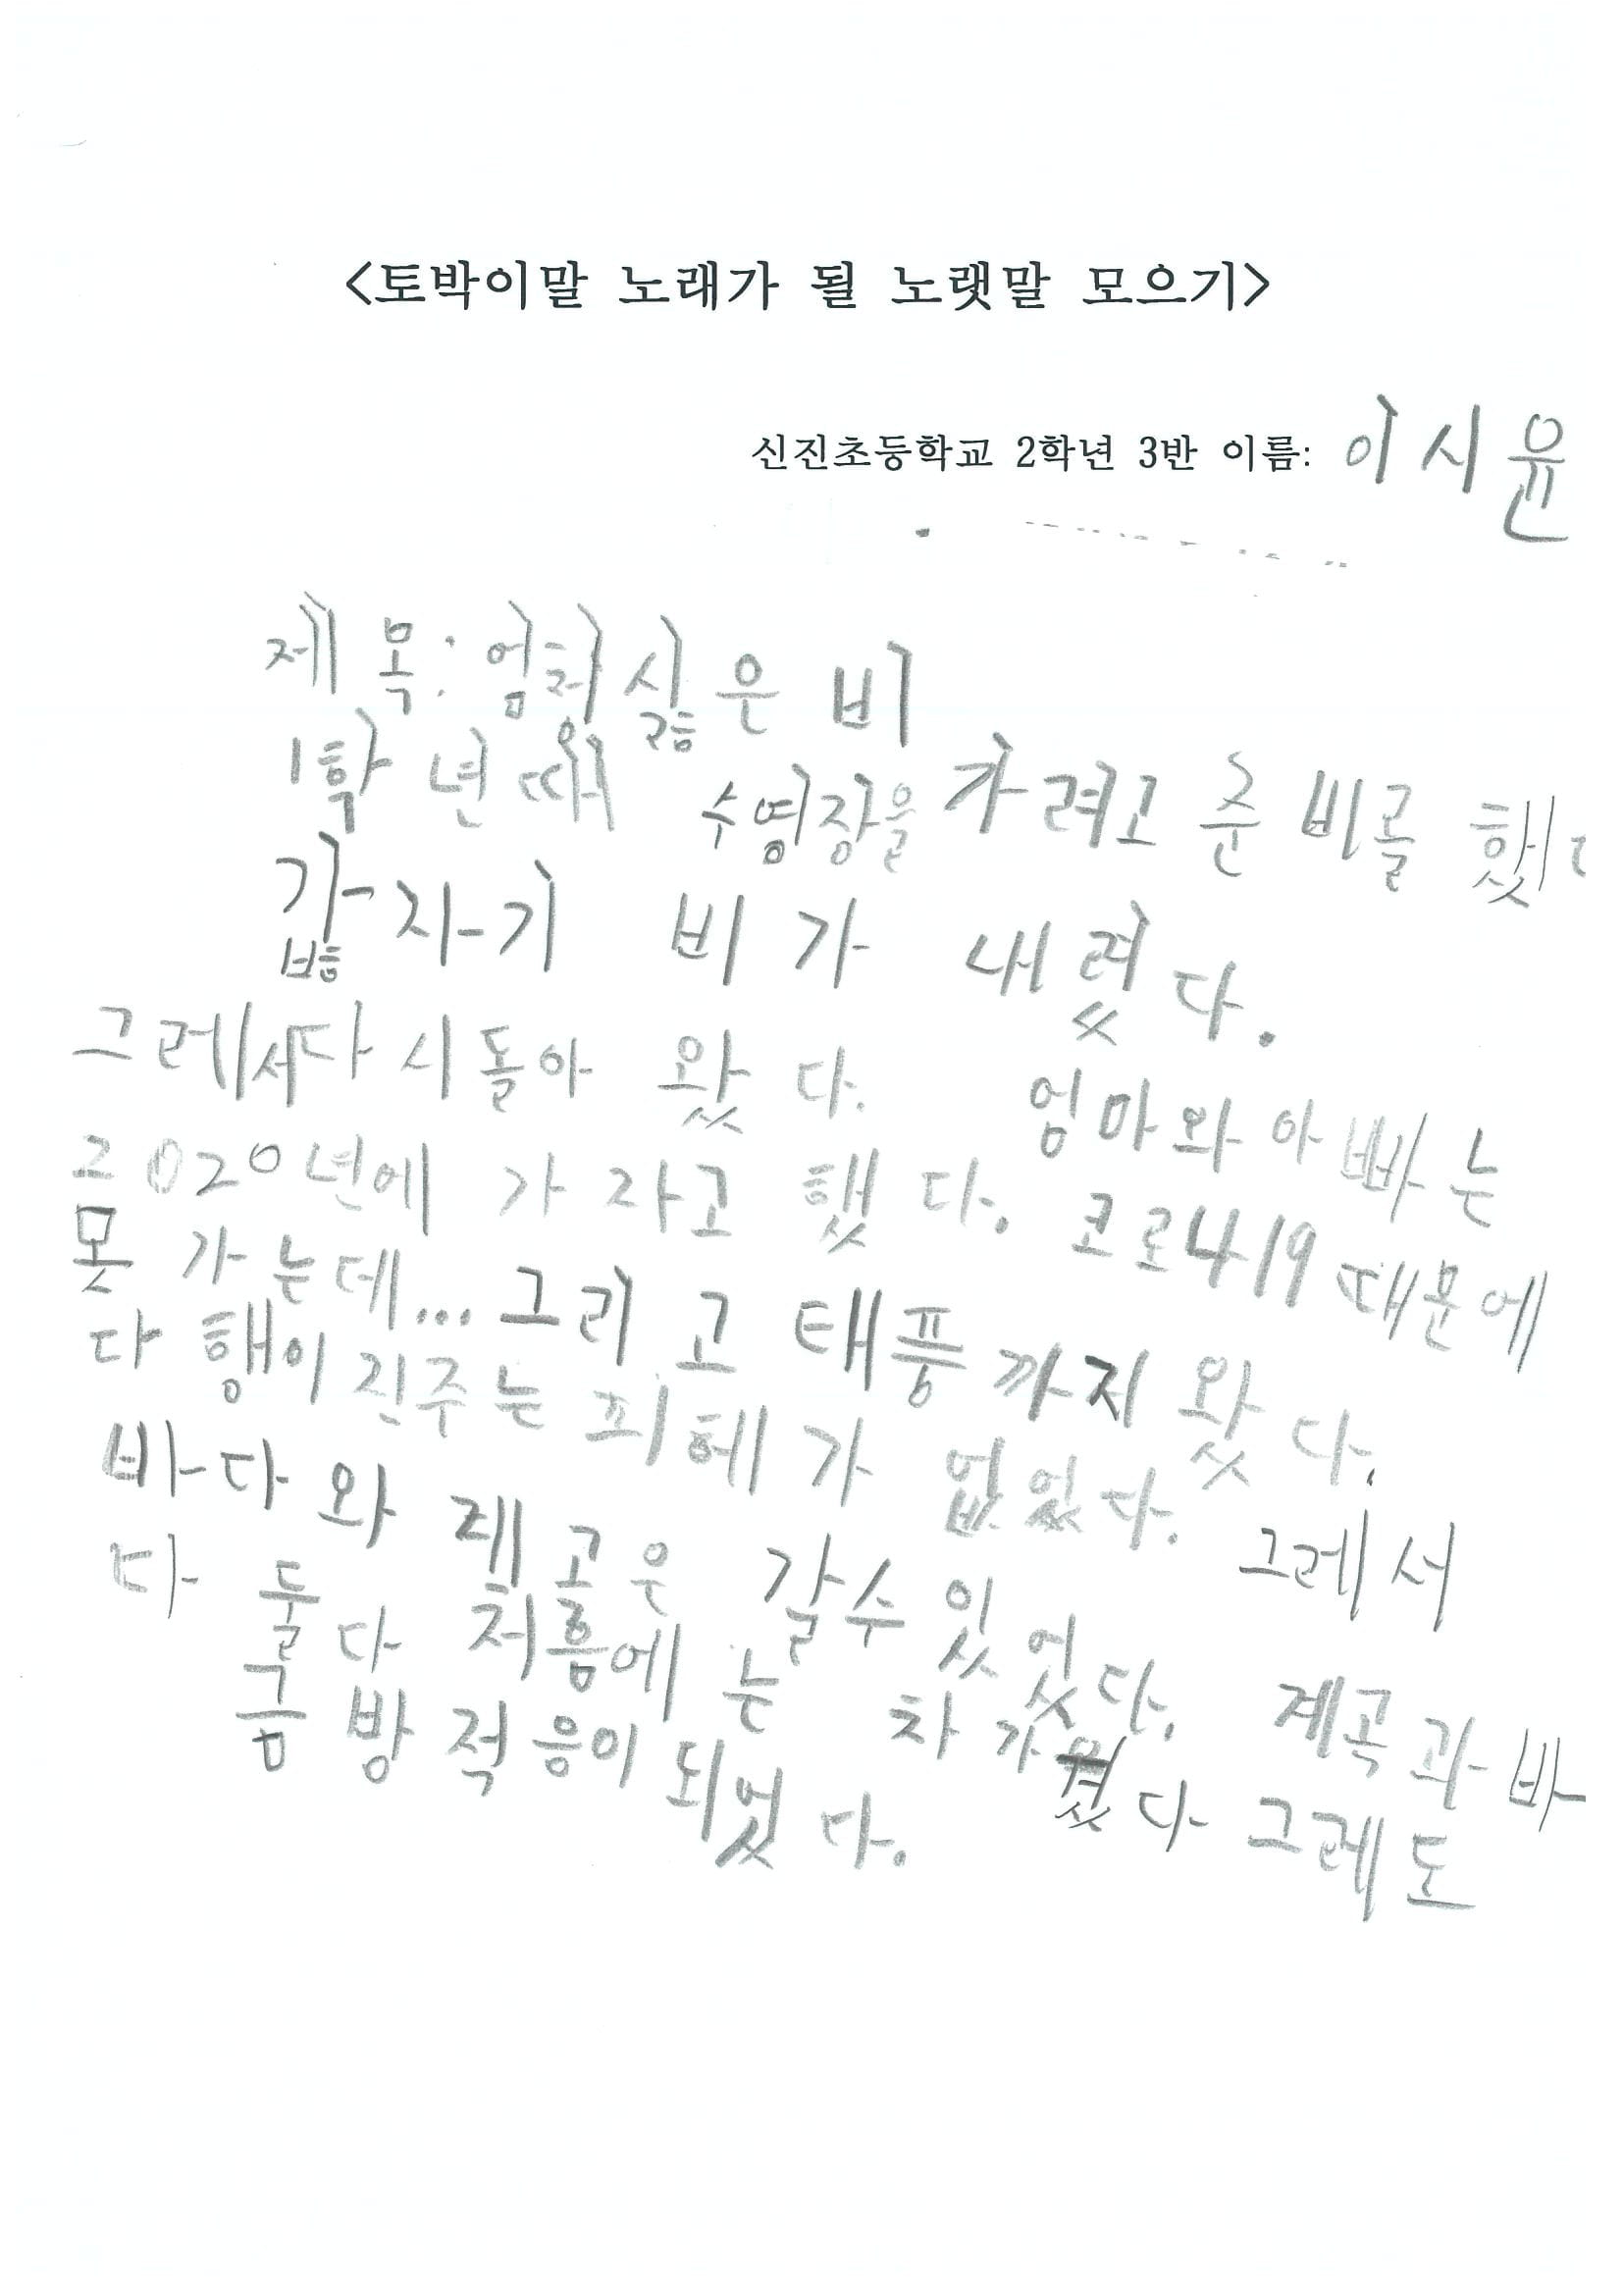 <토박이말 노래가 될 노랫말 모으기>
신진초등학교 2학년 3반 이름: 이시윤
제목: 엄처 싫은 비
1학년때 수영장을 가려고 준비를 했
갑자기 비가 내렸다.
그레서다시돌아 왔다. 엄마와 아빠는
2020년에 가자고 했다. 코로나19 때문에
못 가는데... 그리고 태풍까지 왔다.
다행이 진주는 피헤가 없었다. 그레서
바다와 은 갈수 있었다. 계곡과 바
다 둘다 처음에는 차가웠다 그레도
금방 적응이 되었다.